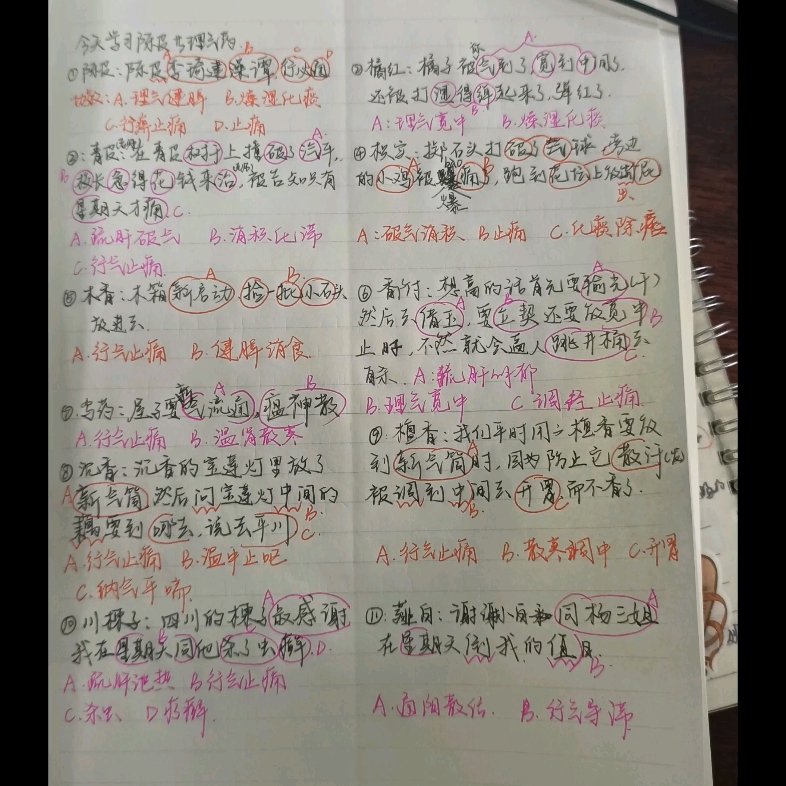 今天学习陈皮类理气药.
①陈皮: 陈皮 燥谭, 行
功效: A.理气健脾 B.燥湿化痰
C.行痹止痛 D.止痛
②橘红: 橘子被气到了, 宽到中间了.
还被打湿得弹起来了, 弹红了.
A:理气宽中 B.燥湿化痰
③: 青皮: 在青皮树干上撞破了汽车,
B被 急得花钱来治, 被告知只有
星期天才痛 C.
A.疏肝破气 B.消积化滞
C.行气止痛
④枳实: 石头打破了气球, 旁边
的小鸡被爆痛, 跑到 上
A:破气消积 B止痛 C.化痰除痞
⑤木香: 木箱新启动 捡一批小石头
放进去
A.行气止痛 B.健脾消食.
⑥香附: 想高的话首先要输光(汁)
然后去 玉, 要立契 还要放宽中
止呼, 不然就会逼人跳开桶去
A:疏肝解郁
B.理气宽中 C.调经止痛
⑦乌药: 屋子要气流通, 瘟神散
A.行气止痛 B.温肾散寒
⑧沉香: 沉香的宝莲灯里放了
A新气筒 然后问宝莲灯中间的
藕要到哪去, 说去平川
A.行气止痛 B.温中止呕
C.纳气平喘.
⑨檀香: 我们平时用的檀香要放
到新气筒时, 因为防止它散汁(发)
被调到中间去 开胃而不香了.
A.行气止痛 B.散寒调中 C.开胃
⑩川楝子: 四川的楝子敏感谢
我在星期天同他杀了虫癣. D.
A.疏肝泄热 B行气止痛
C.杀虫 D疗癣.
⑪薤白: 谢谢小白和同杨三姐
在星期天到我的
A.通阳散结. B.行气导滞